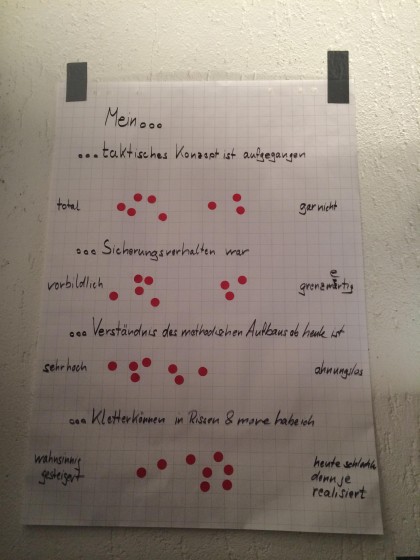 Mein...
...taktisches Konzept ist aufgegangen
total
gar nicht
...Sicherungsverhalten war
vorbildlich
grenzwertig
...Verständnis des methodischen Aufbaus ab heute ist
sehr hoch
ahnungslos
...Kletterkönnen in Rissen & more habe ich
wahnsinnig
gesteigert
heute schlechter
denn je
realisiert